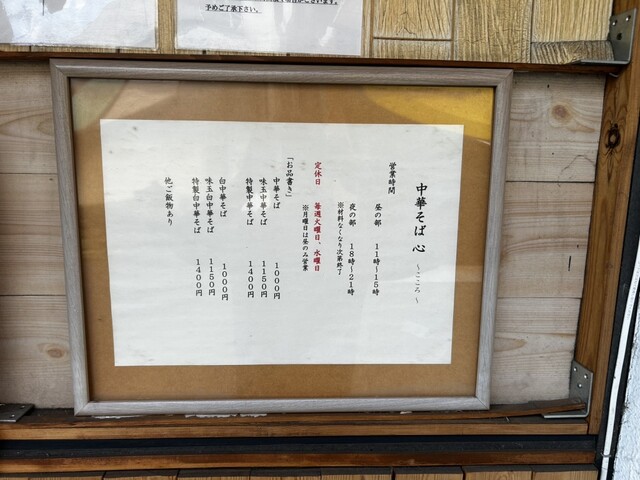 予めご了承下さい。
中華そば 心 ~こころ~
営業時間
昼の部 11時~15時
夜の部 18時~21時
※材料なくなり次第終了
定休日 毎週火曜日、水曜日
※月曜日は昼のみ営業
「お品書き」
中華そば 1000円
味玉中華そば 1150円
特製中華そば 1400円
白中華そば 1000円
味玉白中華そば 1150円
特製白中華そば 1400円
他ご飯物あり